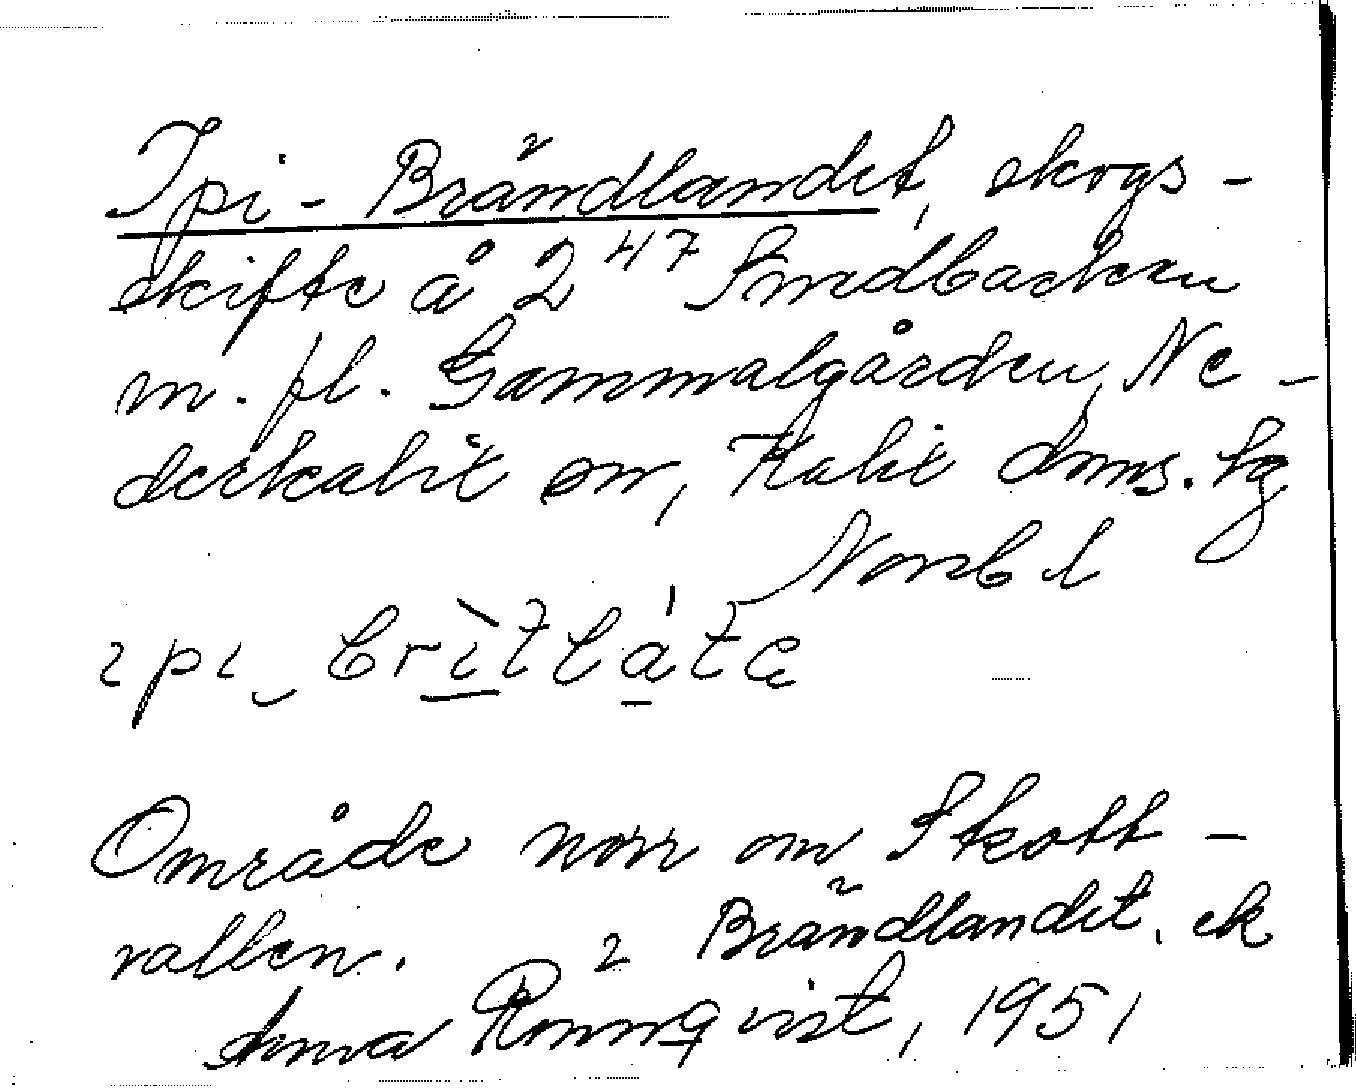 Ipi-Brändlandet, skogs-
skifte å 2⁴⁷ Smedbacken
m. fl. Gammalgården, Ne-
derkalix sn, Kalix doms. tg
Norrb l
Område norr om Skott-
vallen. 2 Brändlandet. ek
Anna Rönnqvist, 1951